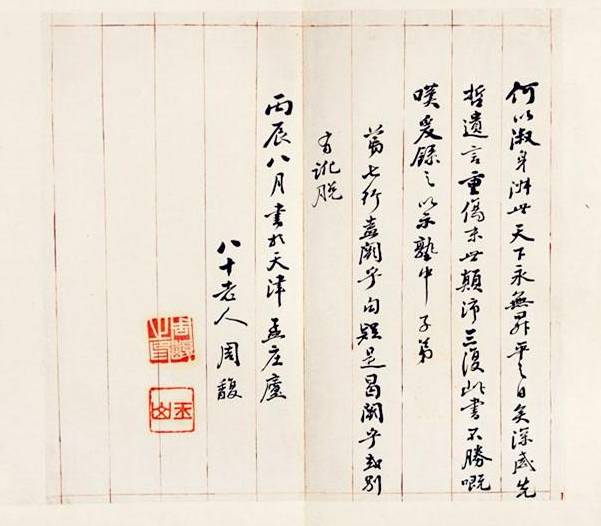 何以淑身世天下永無昇平之日矣深感先
哲遺言重傷末世顛沛三復此書不勝嘅
嘆爰錄之以示塾中子弟
第七行盍闕乎句疑是曷闕乎或別
有訛脫
丙辰八月書於天津孟庄廬
八十老人周馥
玉山